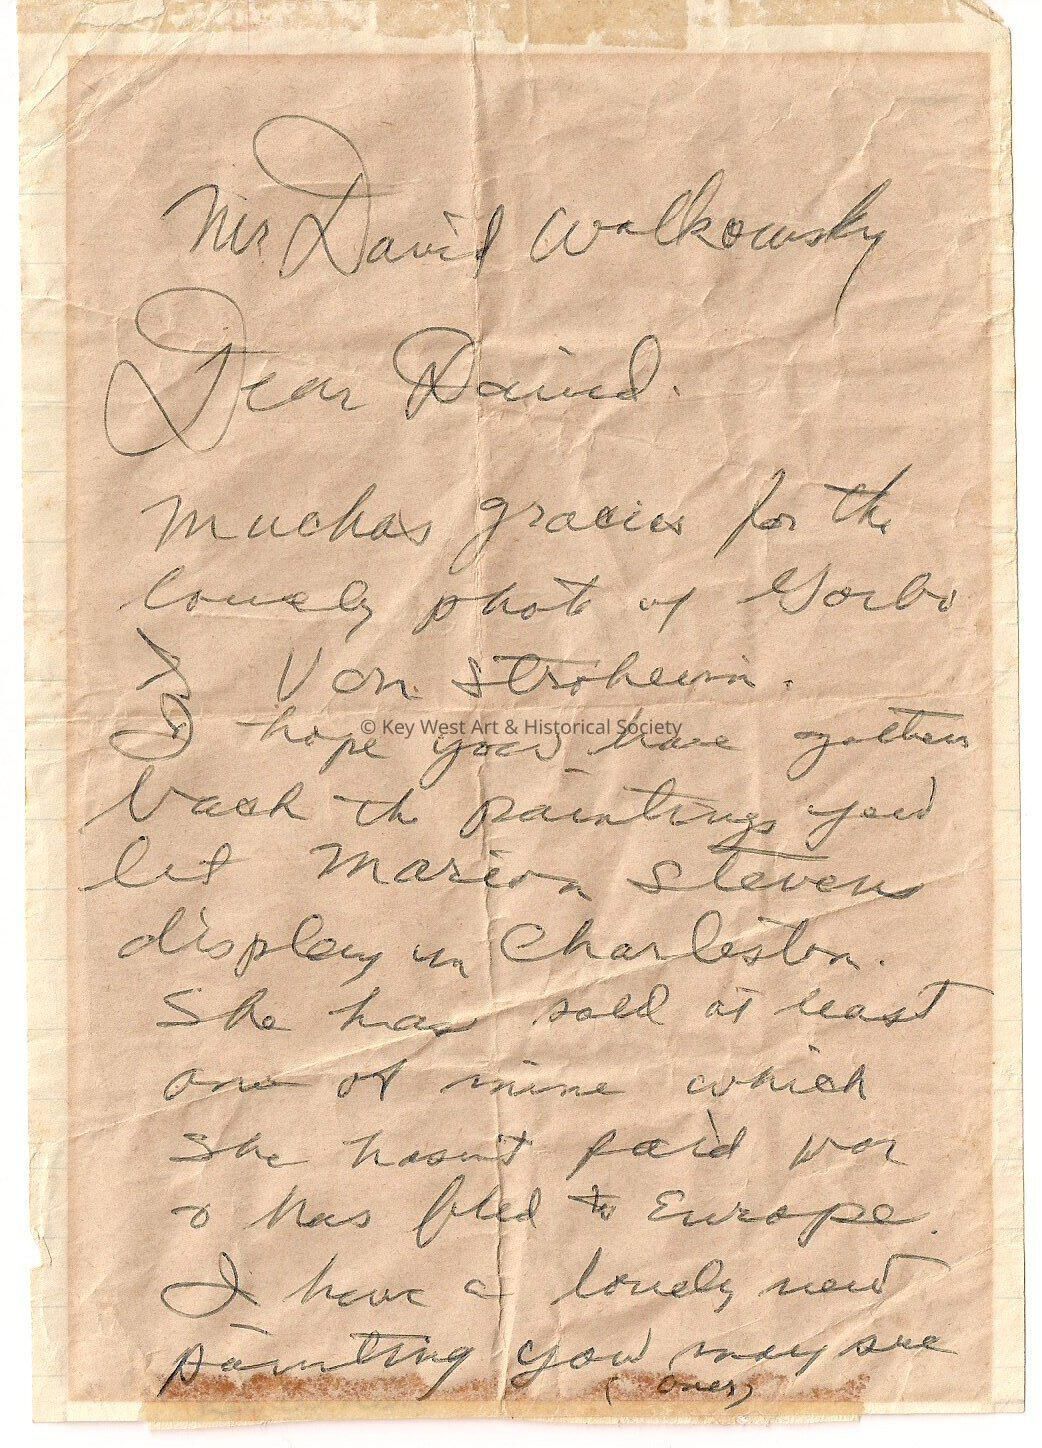 Mr. David Wolkowsky
Dear David.
Muchas gracias for the
lovely photo of Garbo
& Von Stroheim.
I hope you have gotten
© Key West Art & Historical Society
back the paintings you
let Marion Stevens
display in Charleston.
She has sold at least
one of mine which
she hasn't paid for
& has fled to Europe.
I have a lovely new
painting you may see
(over)